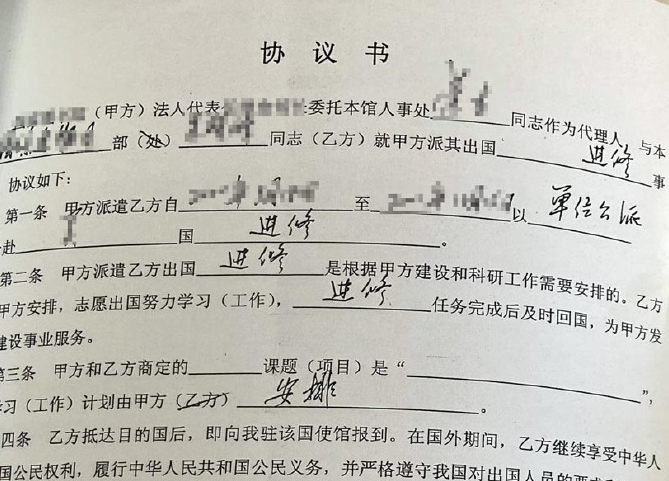 协议书
（甲方）法人代表 委托本馆人事处 同志作为代理人 与本
部（处） 同志（乙方）就甲方派其出国 进修 事
协议如下：
第一条 甲方派遣乙方自 至 以 单位公派
赴 国 进修 。
第二条 甲方派遣乙方出国 进修 是根据甲方建设和科研工作需要安排的。乙方
甲方安排，志愿出国努力学习（工作）， 进修 任务完成后及时回国，为甲方发
建设事业服务。
第三条 甲方和乙方商定的 课题（项目）是“ ”，
学习（工作）计划由甲方（乙方） 安排 。
四条 乙方抵达目的国后，即向我驻该国使馆报到。在国外期间，乙方继续享受中华人
国公民权利，履行中华人民共和国公民义务，并严格遵守我国对出国人员的要求